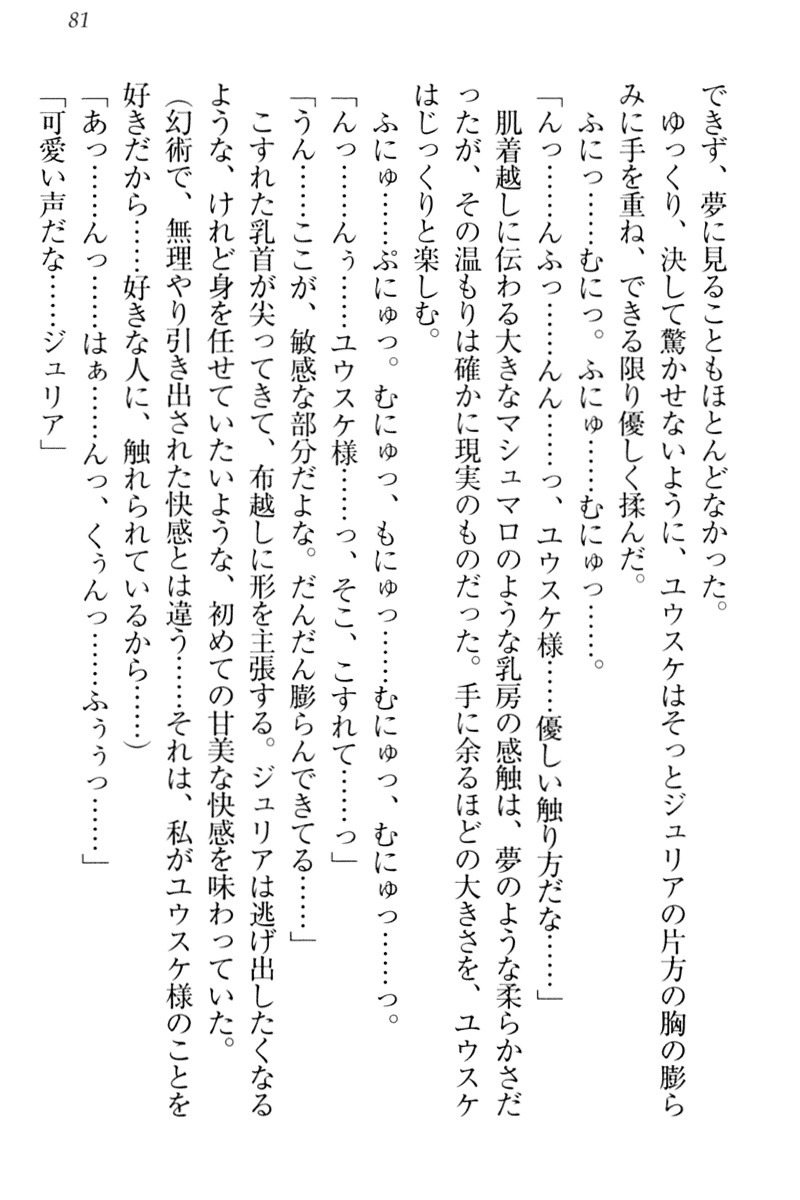 81
できず、夢に見ることもほとんどなかった。
　ゆっくり、決して驚かせないように、ユウスケはそっとジュリアの片方の胸の膨ら
みに手を重ね、できる限り優しく揉んだ。
　ふにっ……むにっ。ふにゅ……むにゅっ……。
「んっ……んふっ……んん……っ、ユウスケ様……優しい触り方だな……」
　肌着越しに伝わる大きなマシュマロのような乳房の感触は、夢のような柔らかさだ
ったが、その温もりは確かに現実のものだった。手に余るほどの大きさを、ユウスケ
はじっくりと楽しむ。
　ふにゅ……ぷにゅっ。むにゅっ、もにゅっ……むにゅっ、むにゅっ……っ。
「んっ……んぅ……ユウスケ様……っ、そこ、こすれて……っ」
「うん……ここが、敏感な部分だよな。だんだん膨らんできてる……」
　こすれた乳首が尖ってきて、布越しに形を主張する。ジュリアは逃げ出したくなる
ような、けれど身を任せていたいような、初めての甘美な快感を味わっていた。
（幻術で、無理やり引き出された快感とは違う……それは、私がユウスケ様のことを
好きだから……好きな人に、触れられているから……）
「あっ……んっ……はぁ……んっ、くぅんっ……ふぅぅっ……」
「可愛い声だな……ジュリア」